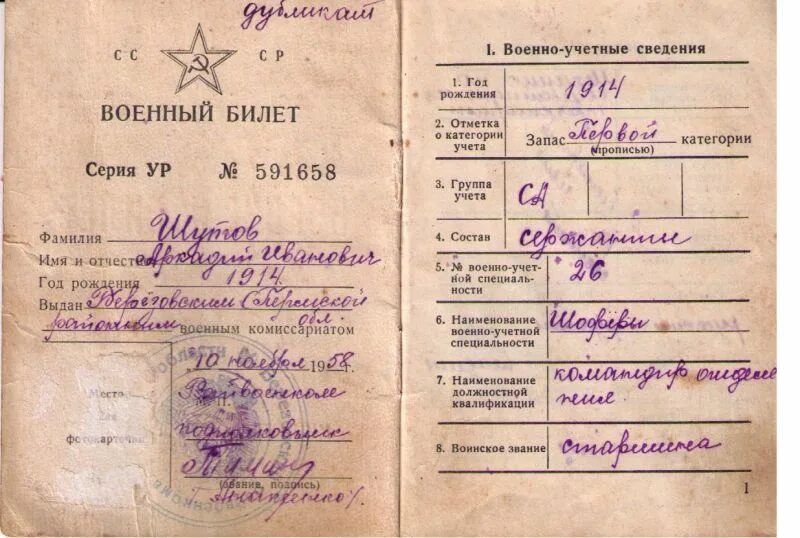 дубликат
СС СР
ВОЕННЫЙ БИЛЕТ
Серия УР № 591658
Фамилия Шутов
Имя и отчество Аркадий Иванович
Год рождения 1914.
Выдан (Пермской
районным обл. военным комиссариатом
10 ноября 1958 г.
Место
для
фотокарточки
подполковник
(звание, подпись)
1. Военно-учетные сведения
1. Год рождения 1914
2. Отметка о категории учета Запас Первой категории
(прописью)
3. Группа учета СА
4. Состав сержанты
5. № военно-учетной специальности 26
6. Наименование военно-учетной специальности Шоферы
7. Наименование должностной квалификации командир отделения
8. Воинское звание старшина
1